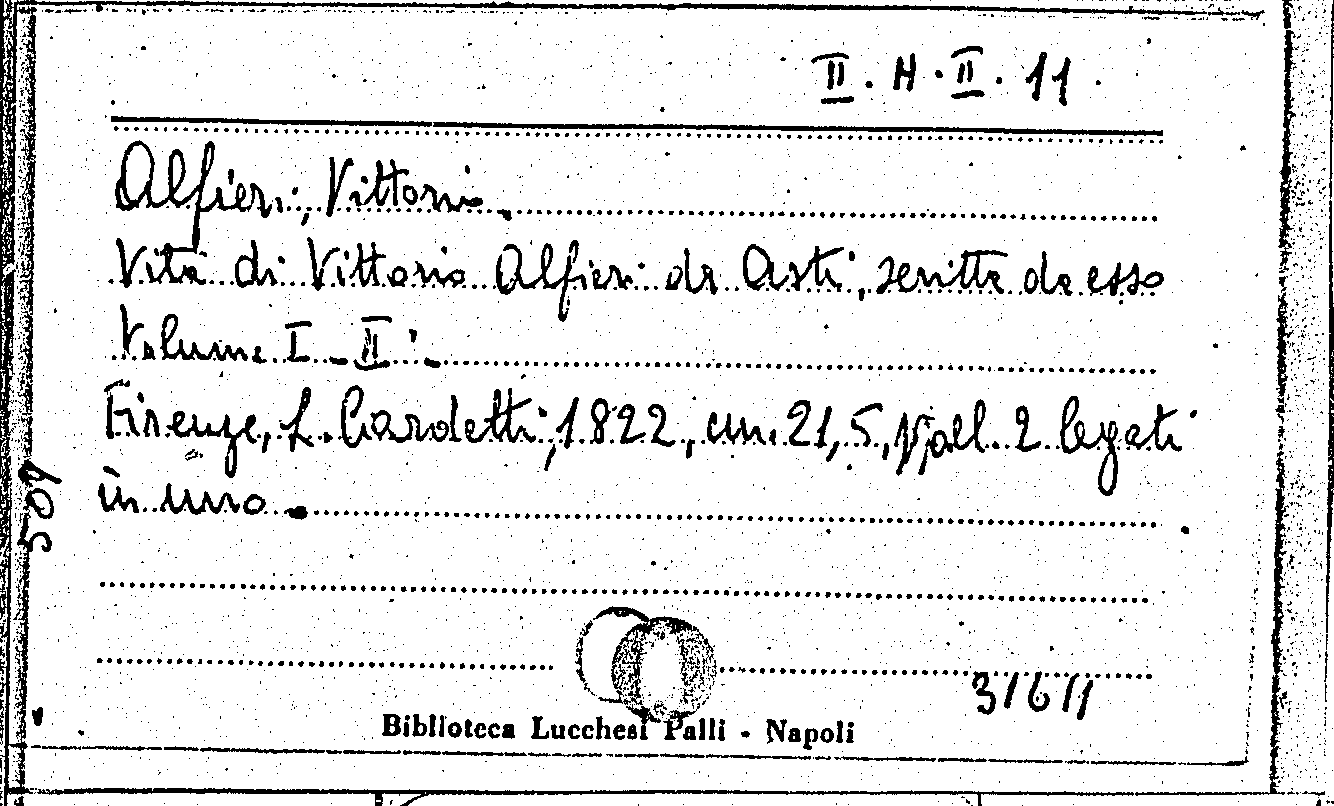 II. H. II. 11.
Alfieri, Vittorio.
Vita di Vittorio Alfieri da Asti, scritta da esso
Volume I - II. -
Firenze, L. Ciardetti, 1822, cm. 21,5, Voll. 2 legati
in uno.
509
31611
Biblioteca Lucchesi Palli - Napoli